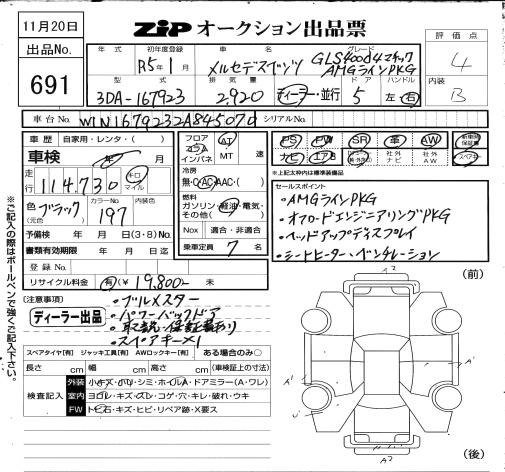 11月20日
ZIP オークション出品票
出品No.
691
年式 初年度登録 車名 グレード
R5年1月 メルセデスベンツ GLS400d4マチック AMGラインPKG
型式 排気量 ドア ハンドル
3DA-167923 2,920 ディーラー・並行 5 左・右
評価点
4
内装
B
車台No. W1N1679232A845070 シリアルNo.
車歴 自家用・レンタ・( )
車検 年 月
走行 114,730 キロ マイル
色 ブラック (元色) カラーNo. 197 内装色
予備検 年 月 日(3・8)No.
書類有効期限 年 月 日迄
登録No.
リサイクル料金 有 ¥19,800- 未
フロア コラム インパネ AT MT 速
冷房 無・AC・AAC・( )
燃料 ガソリン・軽油・電気・その他( )
Nox 適合・非適合
乗車定員 7 名
PS PW SR 革 AW 新車時保証書
ナビ エアB 社外ナビ 社外AW スペアキー
※上記太枠内は標準装備品
セールスポイント
・AMGラインPKG
・オフロードエンジニアリングPKG
・ヘッドアップディスプレイ
・シートヒーター、ベンチレーション
(注意事項)
ディーラー出品
・ブルメスター
・パワーバックドア
・取説・保証書あり
・スペアキー×1
スペアタイヤ[有] ジャッキ工具[有] AWロックキー[有] ある場合のみ○
長さ cm 幅 cm 高さ cm (車検証上の寸法)
検査記入
外装 小キズ・小凹・シミ・ホイルA・ドアミラー(A・ワレ)
室内 ヨゴレ・キズ・スレ・コゲ・穴・キレ・破れ・ウキ
FW トビ石・キズ・ヒビ・リペア跡・X要ス
(前)
A2
A'
A'
A2
(後)
※ご記入の際はボールペンで強くご記入下さい。